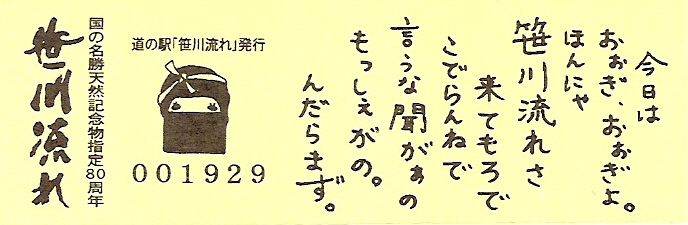 今日は
おぉぎ、おぉぎょ。
ほんにゃ
笹川流れさ
来てもろで
こでらんねで
言うな聞がぁの
もっしぇがの。
んだらまず。
道の駅「笹川流れ」発行
001929
国の名勝天然記念物指定80周年
笹川流れ